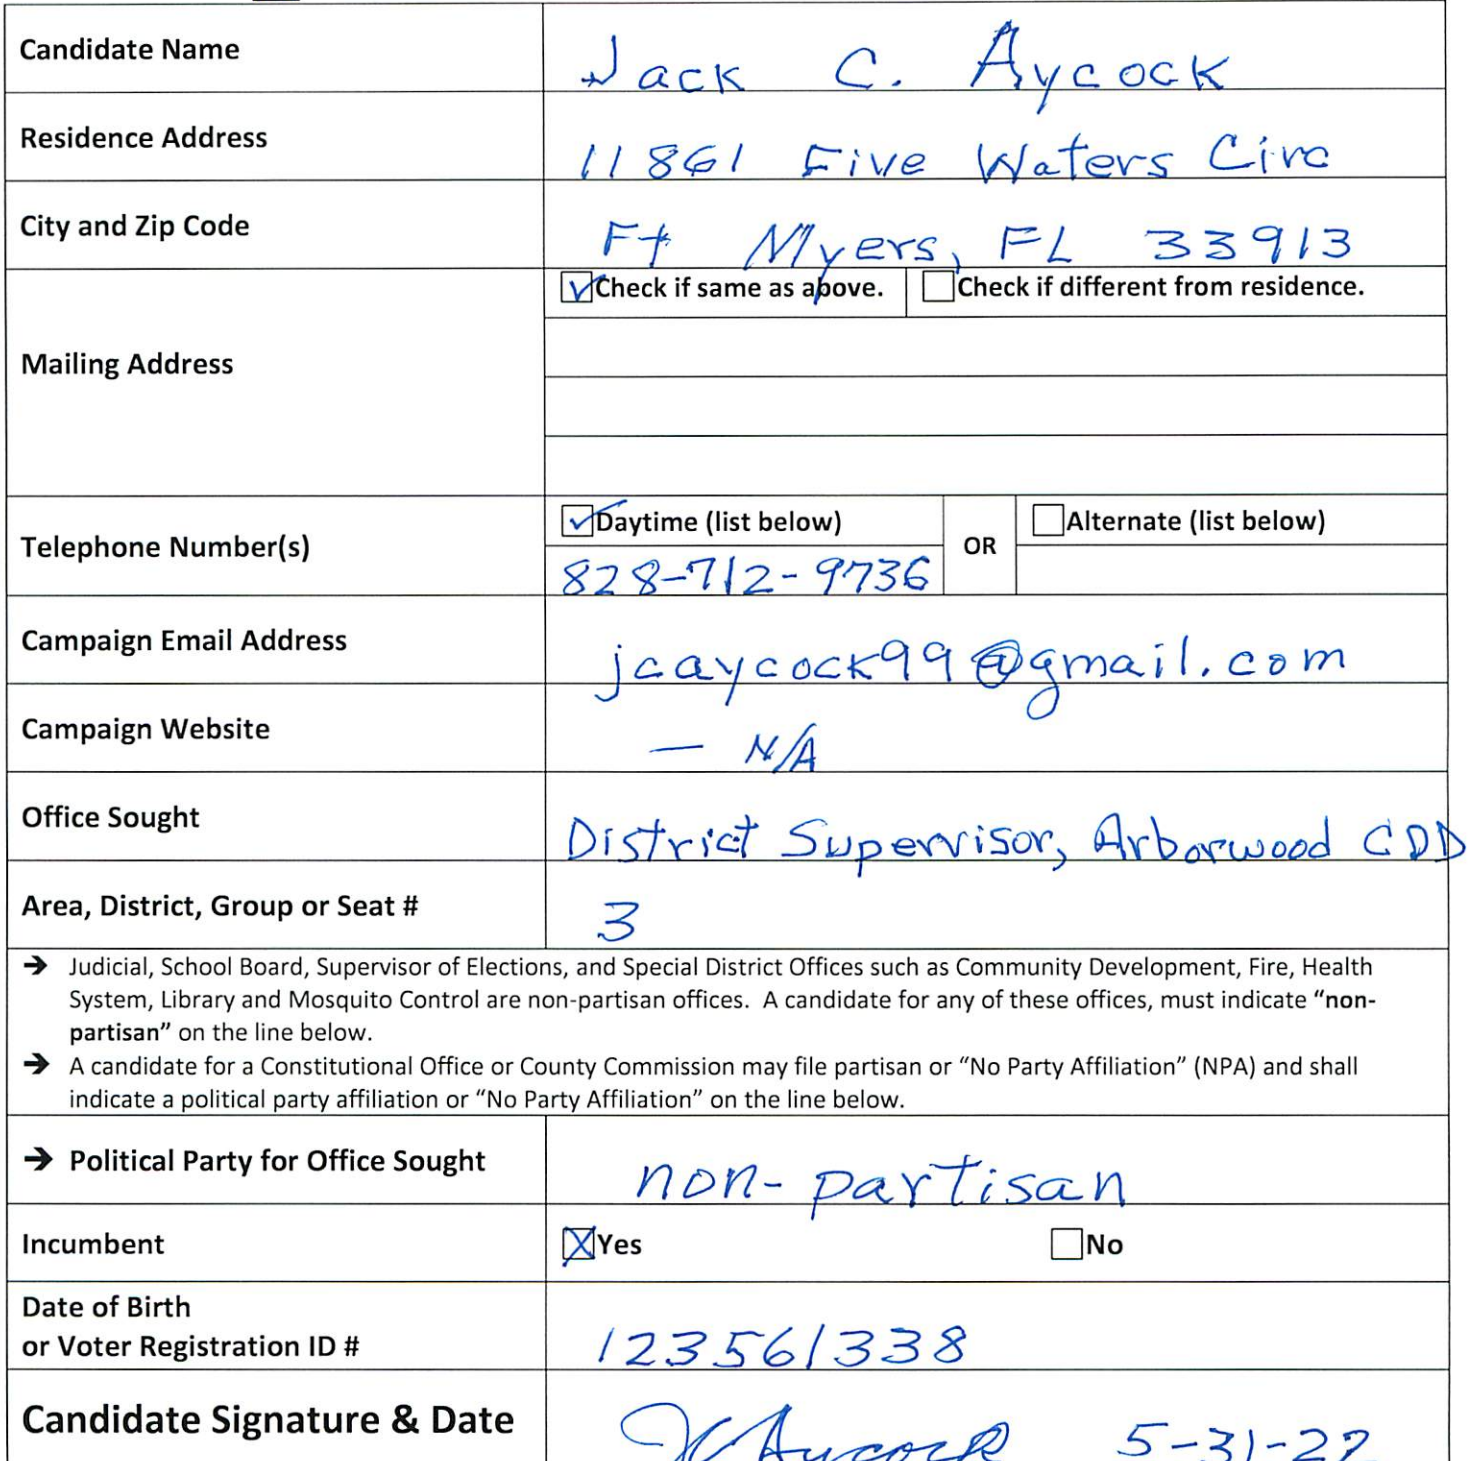 Candidate Name
Jack C. Aycock
Residence Address
11861 Five Waters Circ
City and Zip Code
Ft Myers, FL 33913
Mailing Address
Check if same as above.
Check if different from residence.
Telephone Number(s)
Daytime (list below)
828-712-9736
OR
Alternate (list below)
Campaign Email Address
jcaycock99@gmail.com
Campaign Website
— N/A
Office Sought
District Supervisor, Arborwood CDD
Area, District, Group or Seat #
3
→ Judicial, School Board, Supervisor of Elections, and Special District Offices such as Community Development, Fire, Health
System, Library and Mosquito Control are non-partisan offices. A candidate for any of these offices, must indicate “non-
partisan” on the line below.
→ A candidate for a Constitutional Office or County Commission may file partisan or “No Party Affiliation” (NPA) and shall
indicate a political party affiliation or “No Party Affiliation” on the line below.
→ Political Party for Office Sought
non-partisan
Incumbent
Yes
No
Date of Birth
or Voter Registration ID #
123561338
Candidate Signature & Date
JCAycock 5-31-22